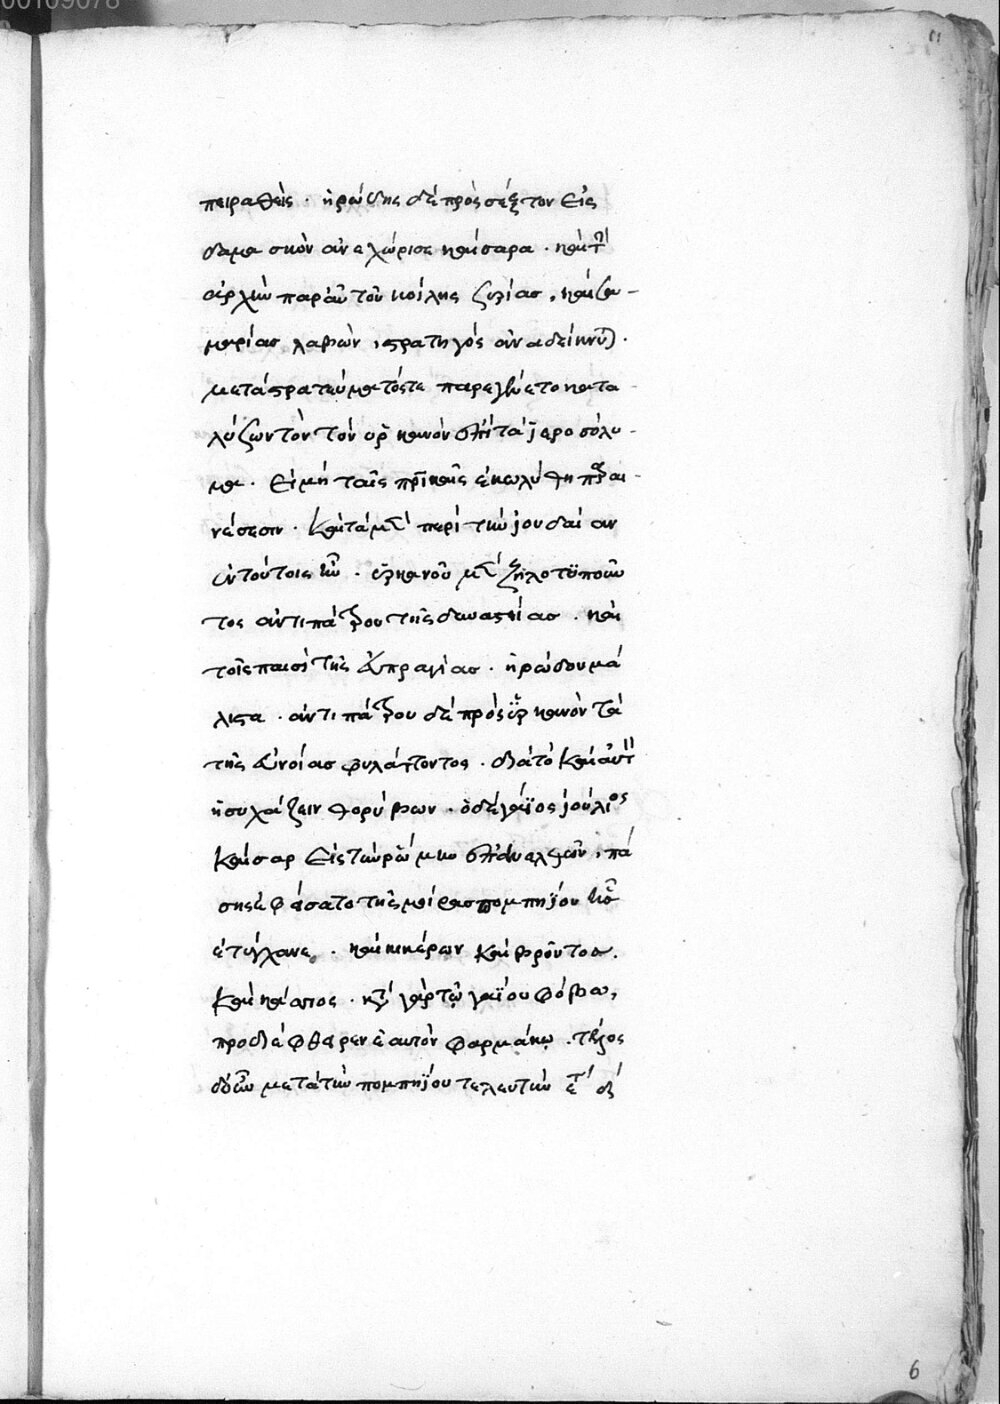 00109078
πειραθεὶς · ἡρώδης δὲ πρὸς σέξτον εἰς
δαμασκὸν ἀνεχώρισε καίσαρα · καὶ τ
ἀρχὴν παρ' αὐτοῦ κοίλης συρίασ, καὶ σα-
μαρίασ λαβὼν, στρατηγὸς ἀναδείκνυ) ·
μετὰ στρατεύματός τε παρεγένετο κατα-
λύσων τὸν ὑρκανὸν ἐπὶ τὰ ἱεροσόλυ-
μα · εἰ μὴ ταῖς πρικαῖς ἐκωλύθη παραι-
νέσεσιν · καὶ τὰ μὲν περὶ τὴν ἰουδαίαν
ἐν τούτοις ἦν · ὑρκανοῦ μὲν ζηλοτυποῦν
τος ἀντιπάτρου τῆς δυναστείασ · καὶ
τοῖς παισὶ τῆς εὐπραγίασ · ἡρώδου μά
λιστα · ἀντιπάτρου δὲ πρὸς ὑρκανὸν τὰ
τῆς εὐνοίασ φυλάττοντος · διὰ τὸ καὶ αὐτ
ἡσυχάζειν θορύβων · ὁ δὲ γάϊος ἰούλιος
καῖσαρ εἰς τὴν ῥώμην ἐπανελθὼν, πά
σης ἐφάσατο τῆς μοίρασ πομπηΐου
ἐτύγχανε · καὶ κικέρων καὶ βροῦτοσ.
καὶ κάτος · γὰρ τῷ γαΐου φόβω,
προδιέφθειρεν ἑαυτὸν φαρμάκῳ · τέλος
δ' οὖν μετὰ τὴν πομπηΐου τελευτὴν
6